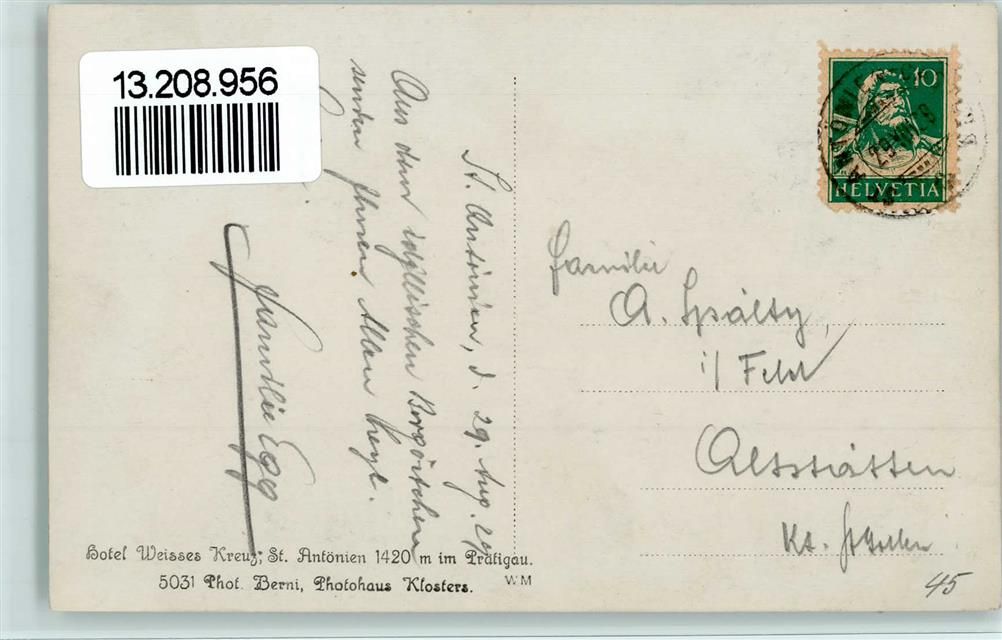 13.208.956
St. Antönien, d. 29. Aug. 29
Aus dem idyllischen Bergörtchen
senden Ihnen Allen herzl.
Familie Egg
10
HELVETIA
Familie
A. Spälty,
i/ Feld
Altstätten
Kt. St. Gallen
Hotel Weisses Kreuz, St. Antönien 1420 m im Prätigau.
5031 Phot. Berni, Photohaus Klosters.
WM
45